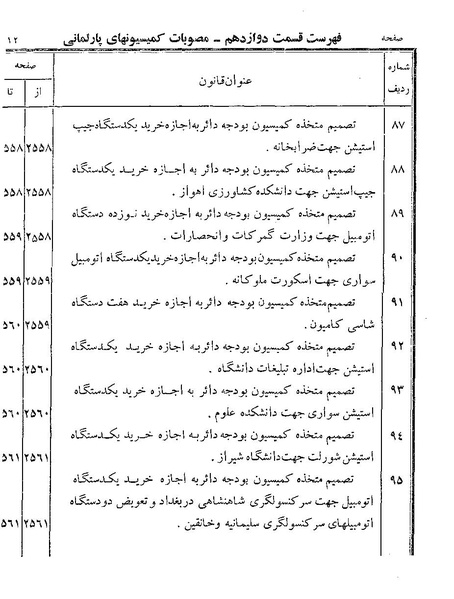 صفحه فهرست قسمت دوازدهم ــ مصوبات کمیسیونهای پارلمانی ۱۲
شماره ردیف عنوان قانون صفحه
از تا
۸۷ تصمیم متخذه کمیسیون بودجه دائر به اجازه خرید یکدستگاه جیپ
استیشن جهت ضرابخانه . ۲۵۵۸ ۵۵۸
۸۸ تصمیم متخذه کمیسیون بودجه دائر به اجازه خرید یکدستگاه
جیپ استیشن جهت دانشکده کشاورزی اهواز . ۲۵۵۸ ۵۵۸
۸۹ تصمیم متخذه کمیسیون بودجه دائر به اجازه خرید نوزده دستگاه
اتومبیل جهت وزارت گمرکات و انحصارات . ۲۵۵۸ ۵۵۹
۹۰ تصمیم متخذه کمیسیون بودجه دائر به اجازه خرید یکدستگاه اتومبیل
سواری جهت اسکورت ملوکانه . ۲۵۵۹ ۵۵۹
۹۱ تصمیم متخذه کمیسیون بودجه دائر به اجازه خرید هفت دستگاه
شاسی کامیون . ۲۵۵۹ ۵۶۰
۹۲ تصمیم متخذه کمیسیون بودجه دائر به اجازه خرید یکدستگاه
استیشن جهت اداره تبلیغات دانشگاه . ۲۵۶۰ ۵۶۰
۹۳ تصمیم متخذه کمیسیون بودجه دائر به اجازه خرید یکدستگاه
استیشن سواری جهت دانشکده علوم . ۲۵۶۰ ۵۶۰
۹۴ تصمیم متخذه کمیسیون بودجه دائر به اجازه خرید یکدستگاه
استیشن شورلت جهت دانشگاه شیراز . ۲۵۶۱ ۵۶۱
۹۵ تصمیم متخذه کمیسیون بودجه دائر به اجازه خرید یکدستگاه
اتومبیل جهت سرکنسولگری شاهنشاهی در بغداد و تعویض دو دستگاه
اتومبیلهای سرکنسولگری سلیمانیه و خانقین . ۲۵۶۱ ۵۶۱